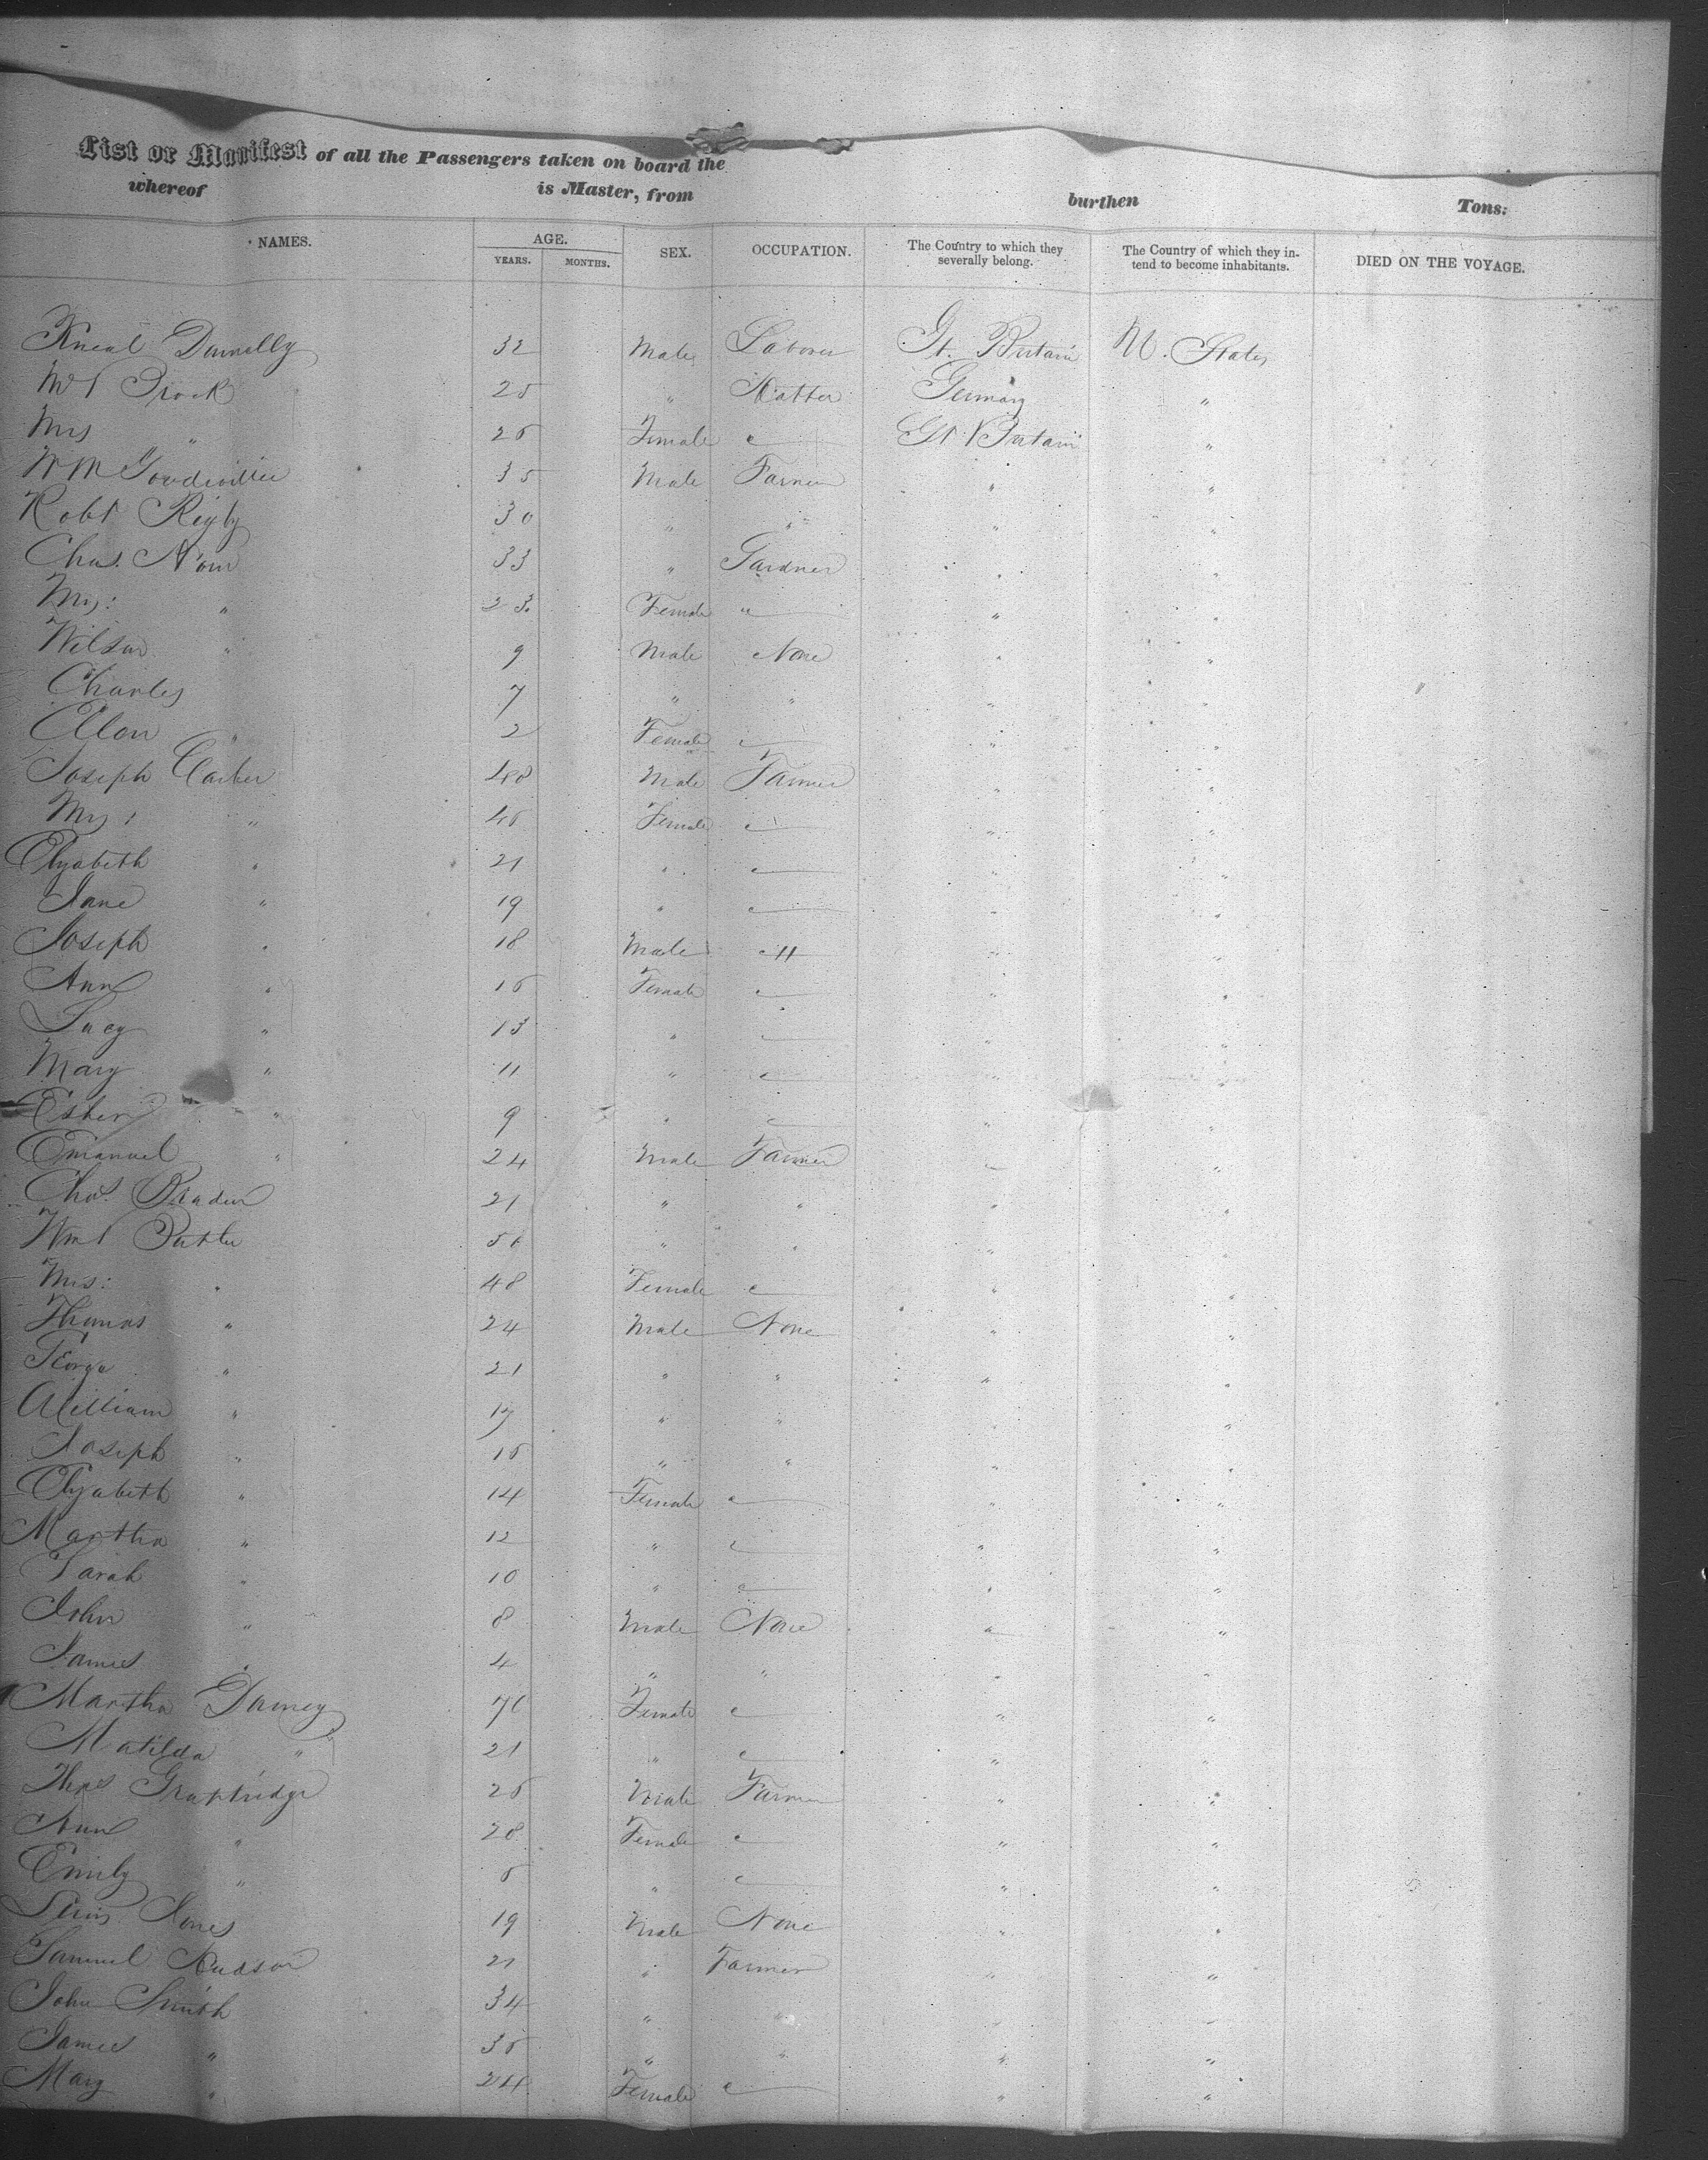 List or Manifest of all the Passengers taken on board the
whereof is Master, from burthen Tons:
NAMES. AGE. SEX. OCCUPATION. The Country to which they severally belong. The Country of which they intend to become inhabitants. DIED ON THE VOYAGE.
YEARS. MONTHS.
Donnelly 32 Male Laborer Gt. Britain U. States
25 " Hatter Germany "
Mrs " 26 Female Gt Britain "
Wm 35 Male Farmer " "
Robt Rigby 30 " " " "
Chas. 33 " Gardner " "
Mrs: " 23 Female " " "
Wilson " 9 Male None " "
Charles 7 " " " "
Ellen " 2 Female " "
Joseph 48 Male Farmer " "
Mrs: " 45 Female " "
Elizabeth " 21 " " "
Jane " 19 " " "
Joseph " 18 Male " " "
Ann " 15 Female " "
Lucy " 13 " " "
Mary " 11 " " "
Esther " 9 " " "
Emanuel " 24 Male Farmer " "
Chas. 21 " " " "
Wm 51 " " " "
Mrs: " 48 Female " "
Thomas " 24 Male None " "
George " 21 " " " "
William " 17 " " " "
Joseph " 15 " " " "
Elizabeth " 14 Female " "
Martha " 12 " " "
Sarah " 10 " " "
John " 8 Male None " "
James " 4 " " " "
Martha Female " "
Matilda " 21 " " "
Thos 25 Male Farmer " "
Ann " 28 Female " "
Emily " " " "
Lewis Jones 19 Male None " "
Samuel Hudson 21 " Farmer " "
John Smith 34 " " " "
James " 35 " " " "
Mary " 24 Female " "